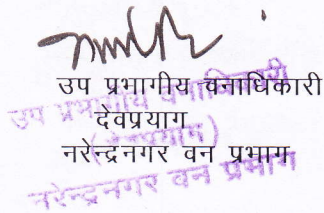 उप प्रभागीय वनाधिकारी
देवप्रयाग
नरेन्द्रनगर वन प्रभाग
उप प्रभागीय वनाधिकारी
(देवप्रयाग)
नरेन्द्रनगर वन प्रभाग